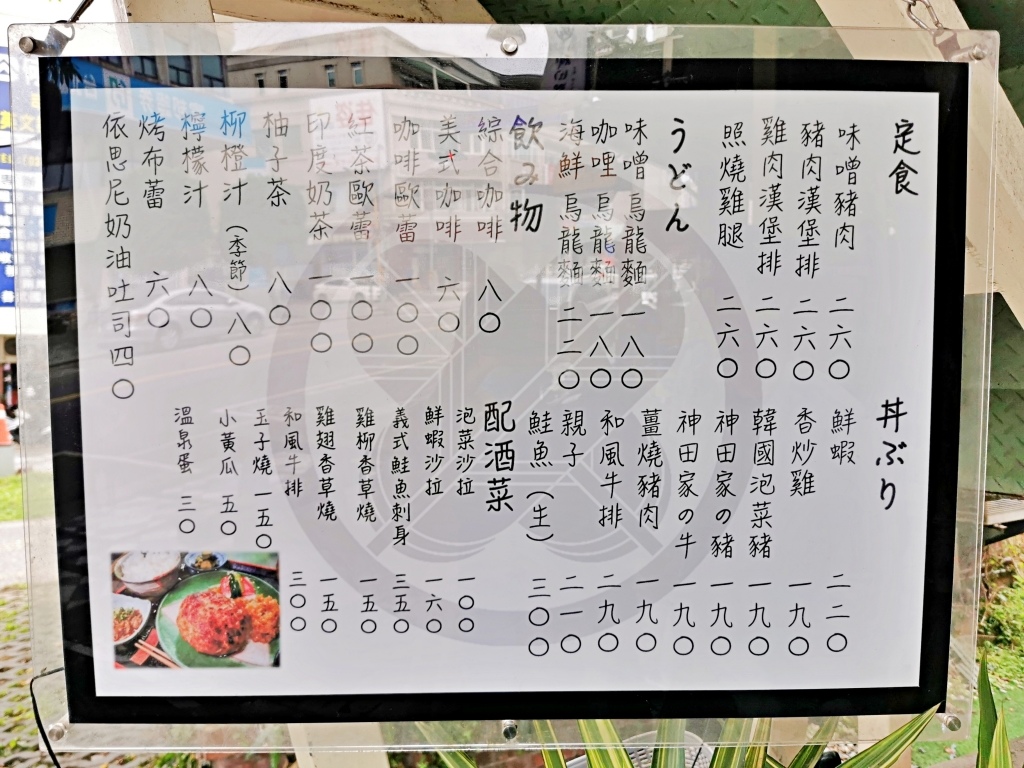 定食
味噌豬肉 二六〇
豬肉漢堡排 二六〇
雞肉漢堡排 二六〇
照燒雞腿 二六〇
うどん
味噌烏龍麵 一八〇
咖哩烏龍麵 一八〇
海鮮烏龍麵 二二〇
飲み物
綜合咖啡 八〇
美式咖啡 六〇
咖啡歐蕾 一〇〇
紅茶歐蕾 一〇〇
印度奶茶 一〇〇
柚子茶 八〇
柳橙汁(季節) 八〇
檸檬汁 八〇
烤布蕾 六〇
依思尼奶油吐司 四〇
丼ぶり
鮮蝦 二二〇
香炒雞 一九〇
韓國泡菜豬 一九〇
神田家の豬 一九〇
神田家の牛 一九〇
薑燒豬肉 一九〇
和風牛排 二九〇
親子 二一〇
鮭魚(生) 三〇〇
配酒菜
泡菜沙拉 一〇〇
鮮蝦沙拉 一六〇
義式鮭魚刺身 三五〇
雞柳香草燒 一五〇
雞翅香草燒 一五〇
和風牛排 三〇〇
玉子燒 一五〇
小黃瓜 五〇
溫泉蛋 三〇